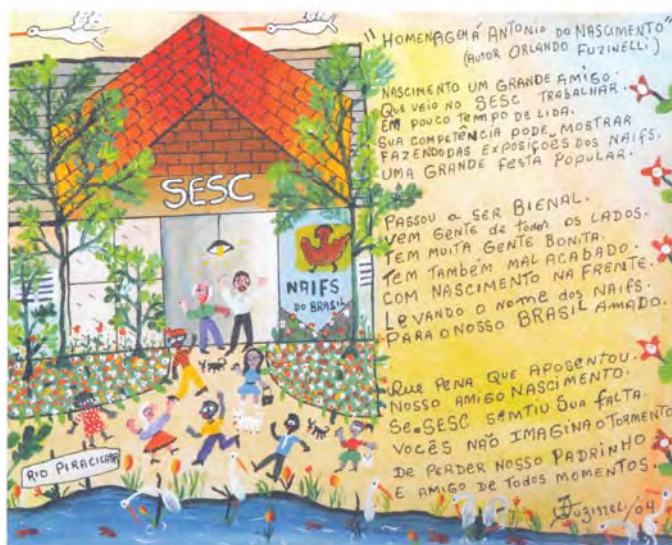 "HOMENAGEM Á ANTONIO DO NASCIMENTO"
(AUTOR ORLANDO FUZINELLI)
NASCIMENTO UM GRANDE AMIGO.
QUE VEIO NO SESC TRABALHAR.
EM POUCO TEMPO DE LIDA.
SUA COMPETÊNCIA PODE MOSTRAR
FAZENDO DAS EXPOSIÇÕES DOS NAIFS.
UMA GRANDE FESTA POPULAR.
PASSOU a SER BIENAL.
VEM GENTE de todos OS LADOS.
TEM MUITA GENTE BONITA.
TEM TAMBÉM MAL ACABADO.
COM NASCIMENTO NA FRENTE.
LEVANDO O NOME dos NAIFS.
PARA O NOSSO BRASIL AMADO.
QUE PENA QUE APOSENTOU.
NOSSO AMIGO NASCIMENTO.
Se o SESC SEMTIU SUA FALTA.
VOCÊS NÃO IMAGINA O TORMENTO
DE PERDER NOSSO PADRINHO
E AMIGO DE TODOS MOMENTOS.
SESC
NAIFS
DO BRASIL
RIO PIRACICABA
/04